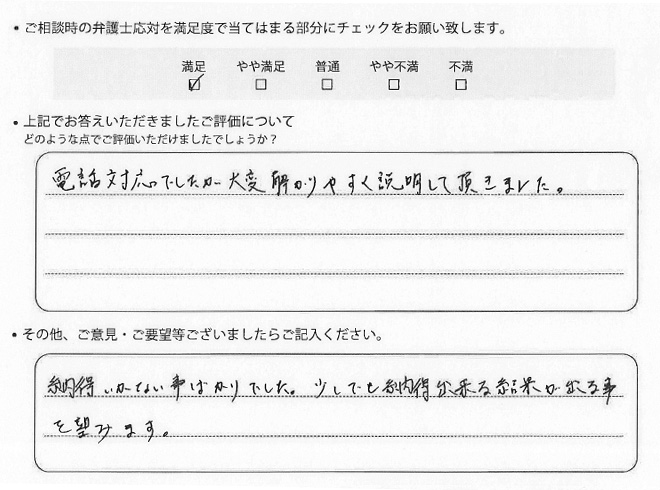 ・ご相談時の弁護士応対を満足度で当てはまる部分にチェックをお願い致します。
満足 やや満足 普通 やや不満 不満
☑ □ □ □ □
・上記でお答えいただきましたご評価について
どのような点でご評価いただけましたでしょうか？
電話対応でしたが大変解かりやすく説明して頂きました。
・その他、ご意見・ご要望等ございましたらご記入ください。
納得いかない事ばかりでした。少しでも納得出来る結果が出る事
を望みます。